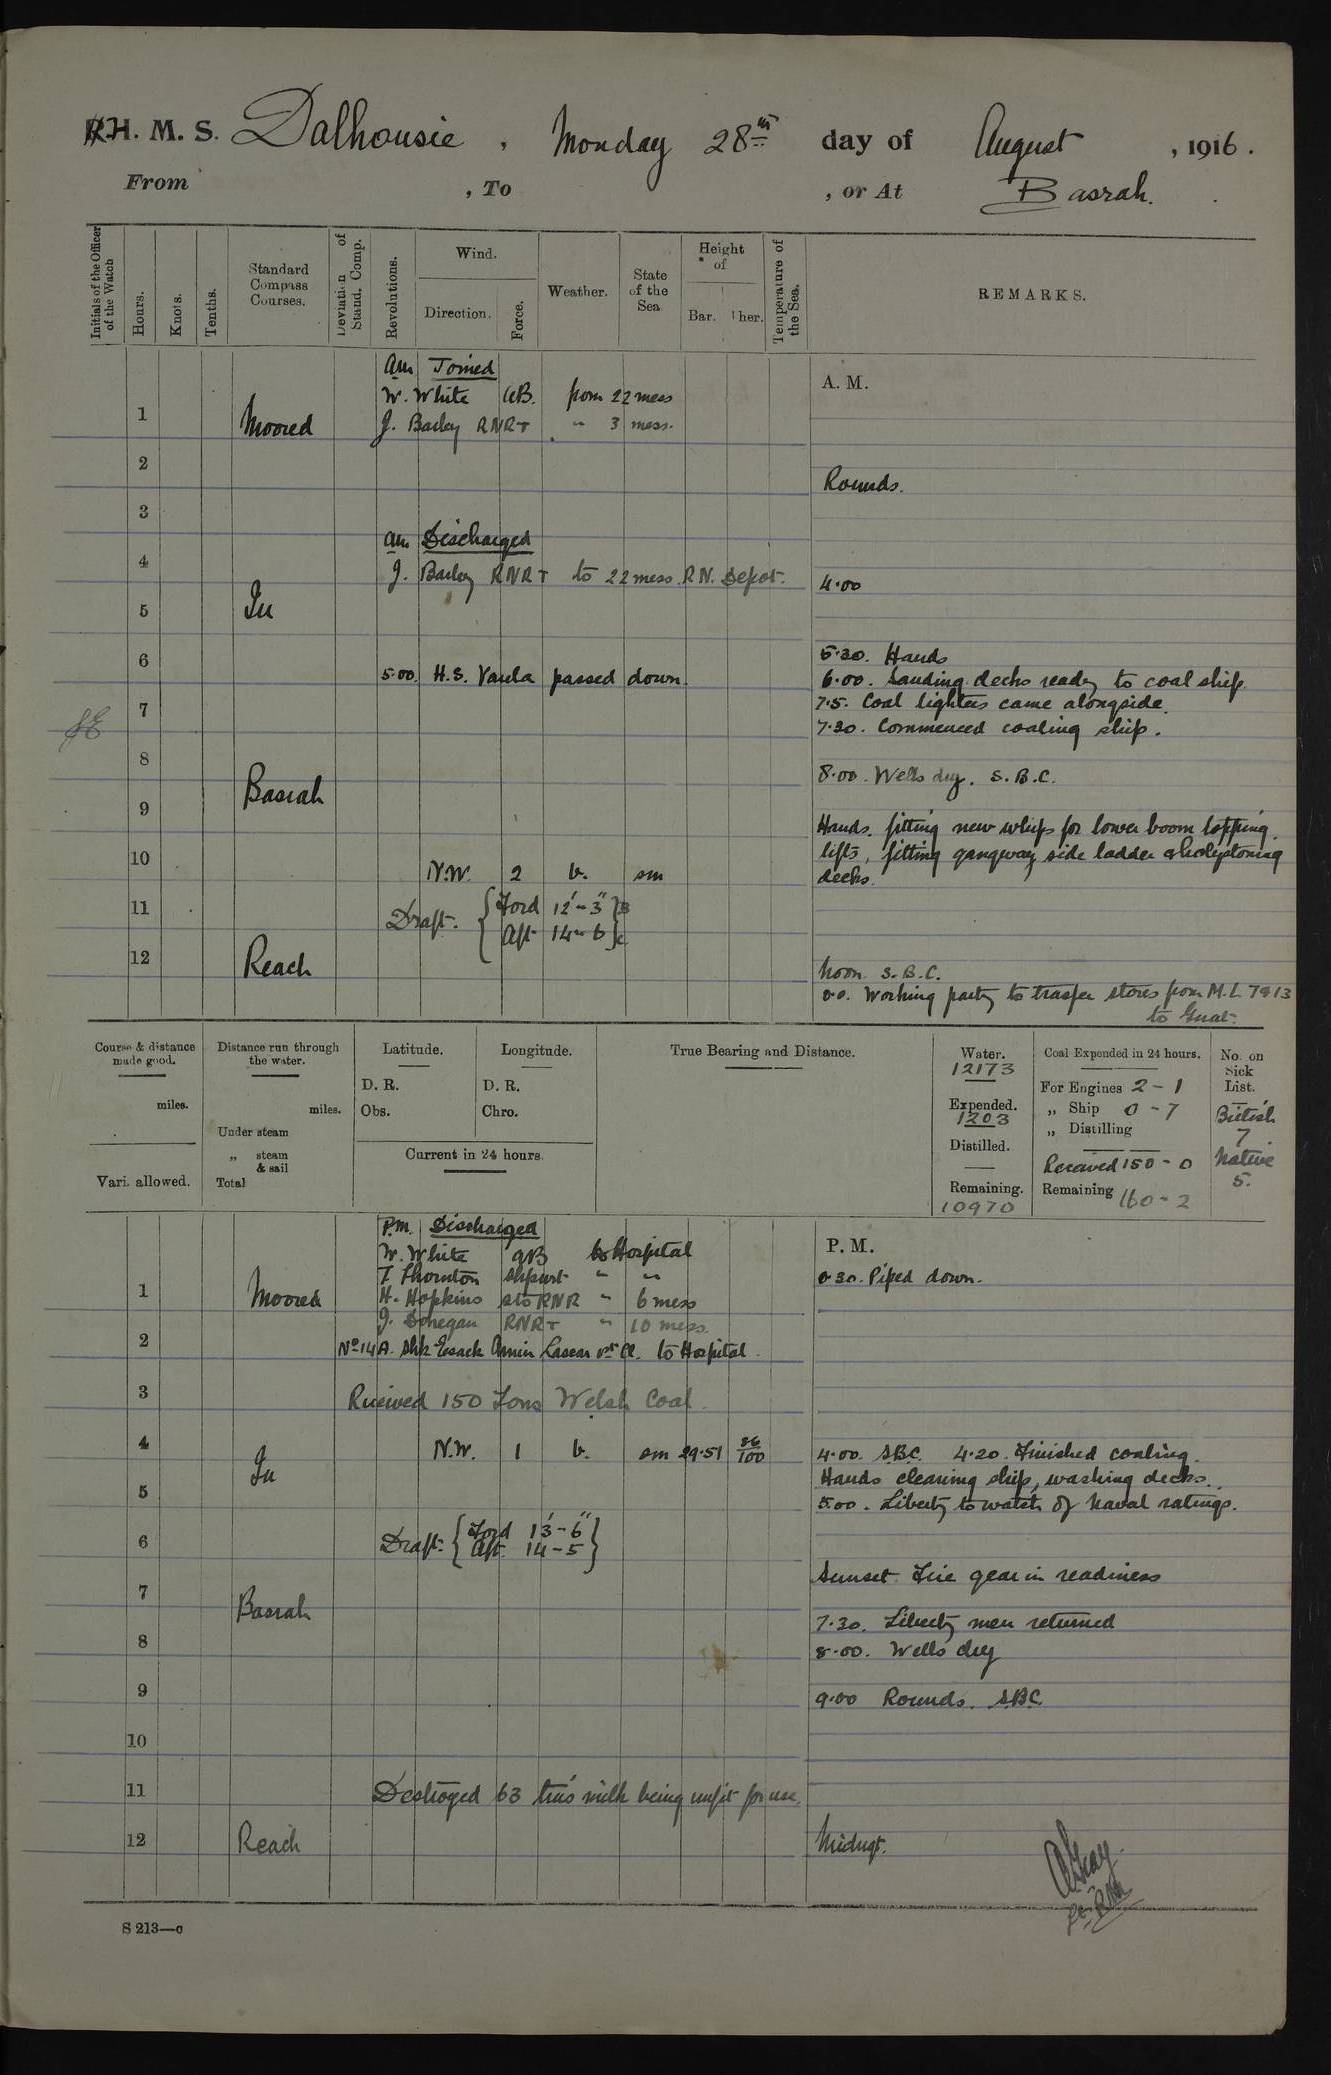 H. M. S. Dalhousie, Monday 28th day of August, 1916.
From , To , or At Basrah.
Initials of the Officer of the Watch
Hours.
Knots.
Tenths.
Standard Compass Courses.
Deviation of Stand. Comp.
Revolutions.
Wind.
Direction.
Force.
Weather.
State of the Sea
Height of
Bar. Ther.
Temperature of the Sea.
REMARKS.
am Joined
A. M.
W. White AB. from 22 mess
1 Moored J. Bailey RNRT " 3 mess.
2
Rounds.
3
am Discharged
4 J. Bailey RNRT to 22 mess R.N. Depot.
4.00
5 In
5.30. Hands
6 5.00. H.S. Varela passed down.
6.00. Sanding decks ready to coal ship.
7 7.5. Coal lighters came alongside.
7.30. Commenced coaling ship.
8 8.00. Wells dry. S.B.C.
Basrah
9 Hands. fitting new whips for lower boom topping
10 lifts, fitting gangway, side ladder & holystoning
N.W. 2 b. sm decks.
11 Draft. Ford 12'-3"
Aft 14-6
12 Reach
Noon S.B.C.
0.0. Working party to trasfer stores from M.L. 7913
to Gnat.
Course & distance made good.
miles.
Vari. allowed.
Distance run through the water.
miles.
Under steam
„ steam & sail
Total
Latitude. Longitude.
D. R. D. R.
Obs. Chro.
Current in 24 hours.
True Bearing and Distance.
Water.
12173
Expended.
1203
Distilled.
Remaining.
10970
Coal Expended in 24 hours.
For Engines 2 - 1
„ Ship 0 - 7
„ Distilling
Received 150 - 0
Remaining 160 - 2
No. on Sick List.
British
7
Native
5.
P.m. Discharged
P. M.
W. White AB to Hospital
0.30. Piped down.
T Thornton Shpwt " "
1 Moored H. Hopkins Sto RNR " 6 mess
J. Donegan RNRT " 10 mess.
2 No 14A. Shk Esack Amin Lascar 1st Cl. to Hospital.
3 Received 150 Tons Welsh Coal.
4 N.W. 1 b. sm 29.51 86/100
4.00. S.B.C. 4.20. Finished coaling.
In
Hands cleaning ship, washing decks.
5 5.00. Liberty to watch of Naval ratings.
6 Draft. Ford 13'-6"
Aft. 14-5
Sunset. Fire gear in readiness
7 Basrah
7.30. Liberty men returned
8 8.00. Wells dry
9 9.00 Rounds. S.B.C.
10
11 Destroyed 63 tins milk being unfit for use.
12 Reach
Midngt.
S 213—c